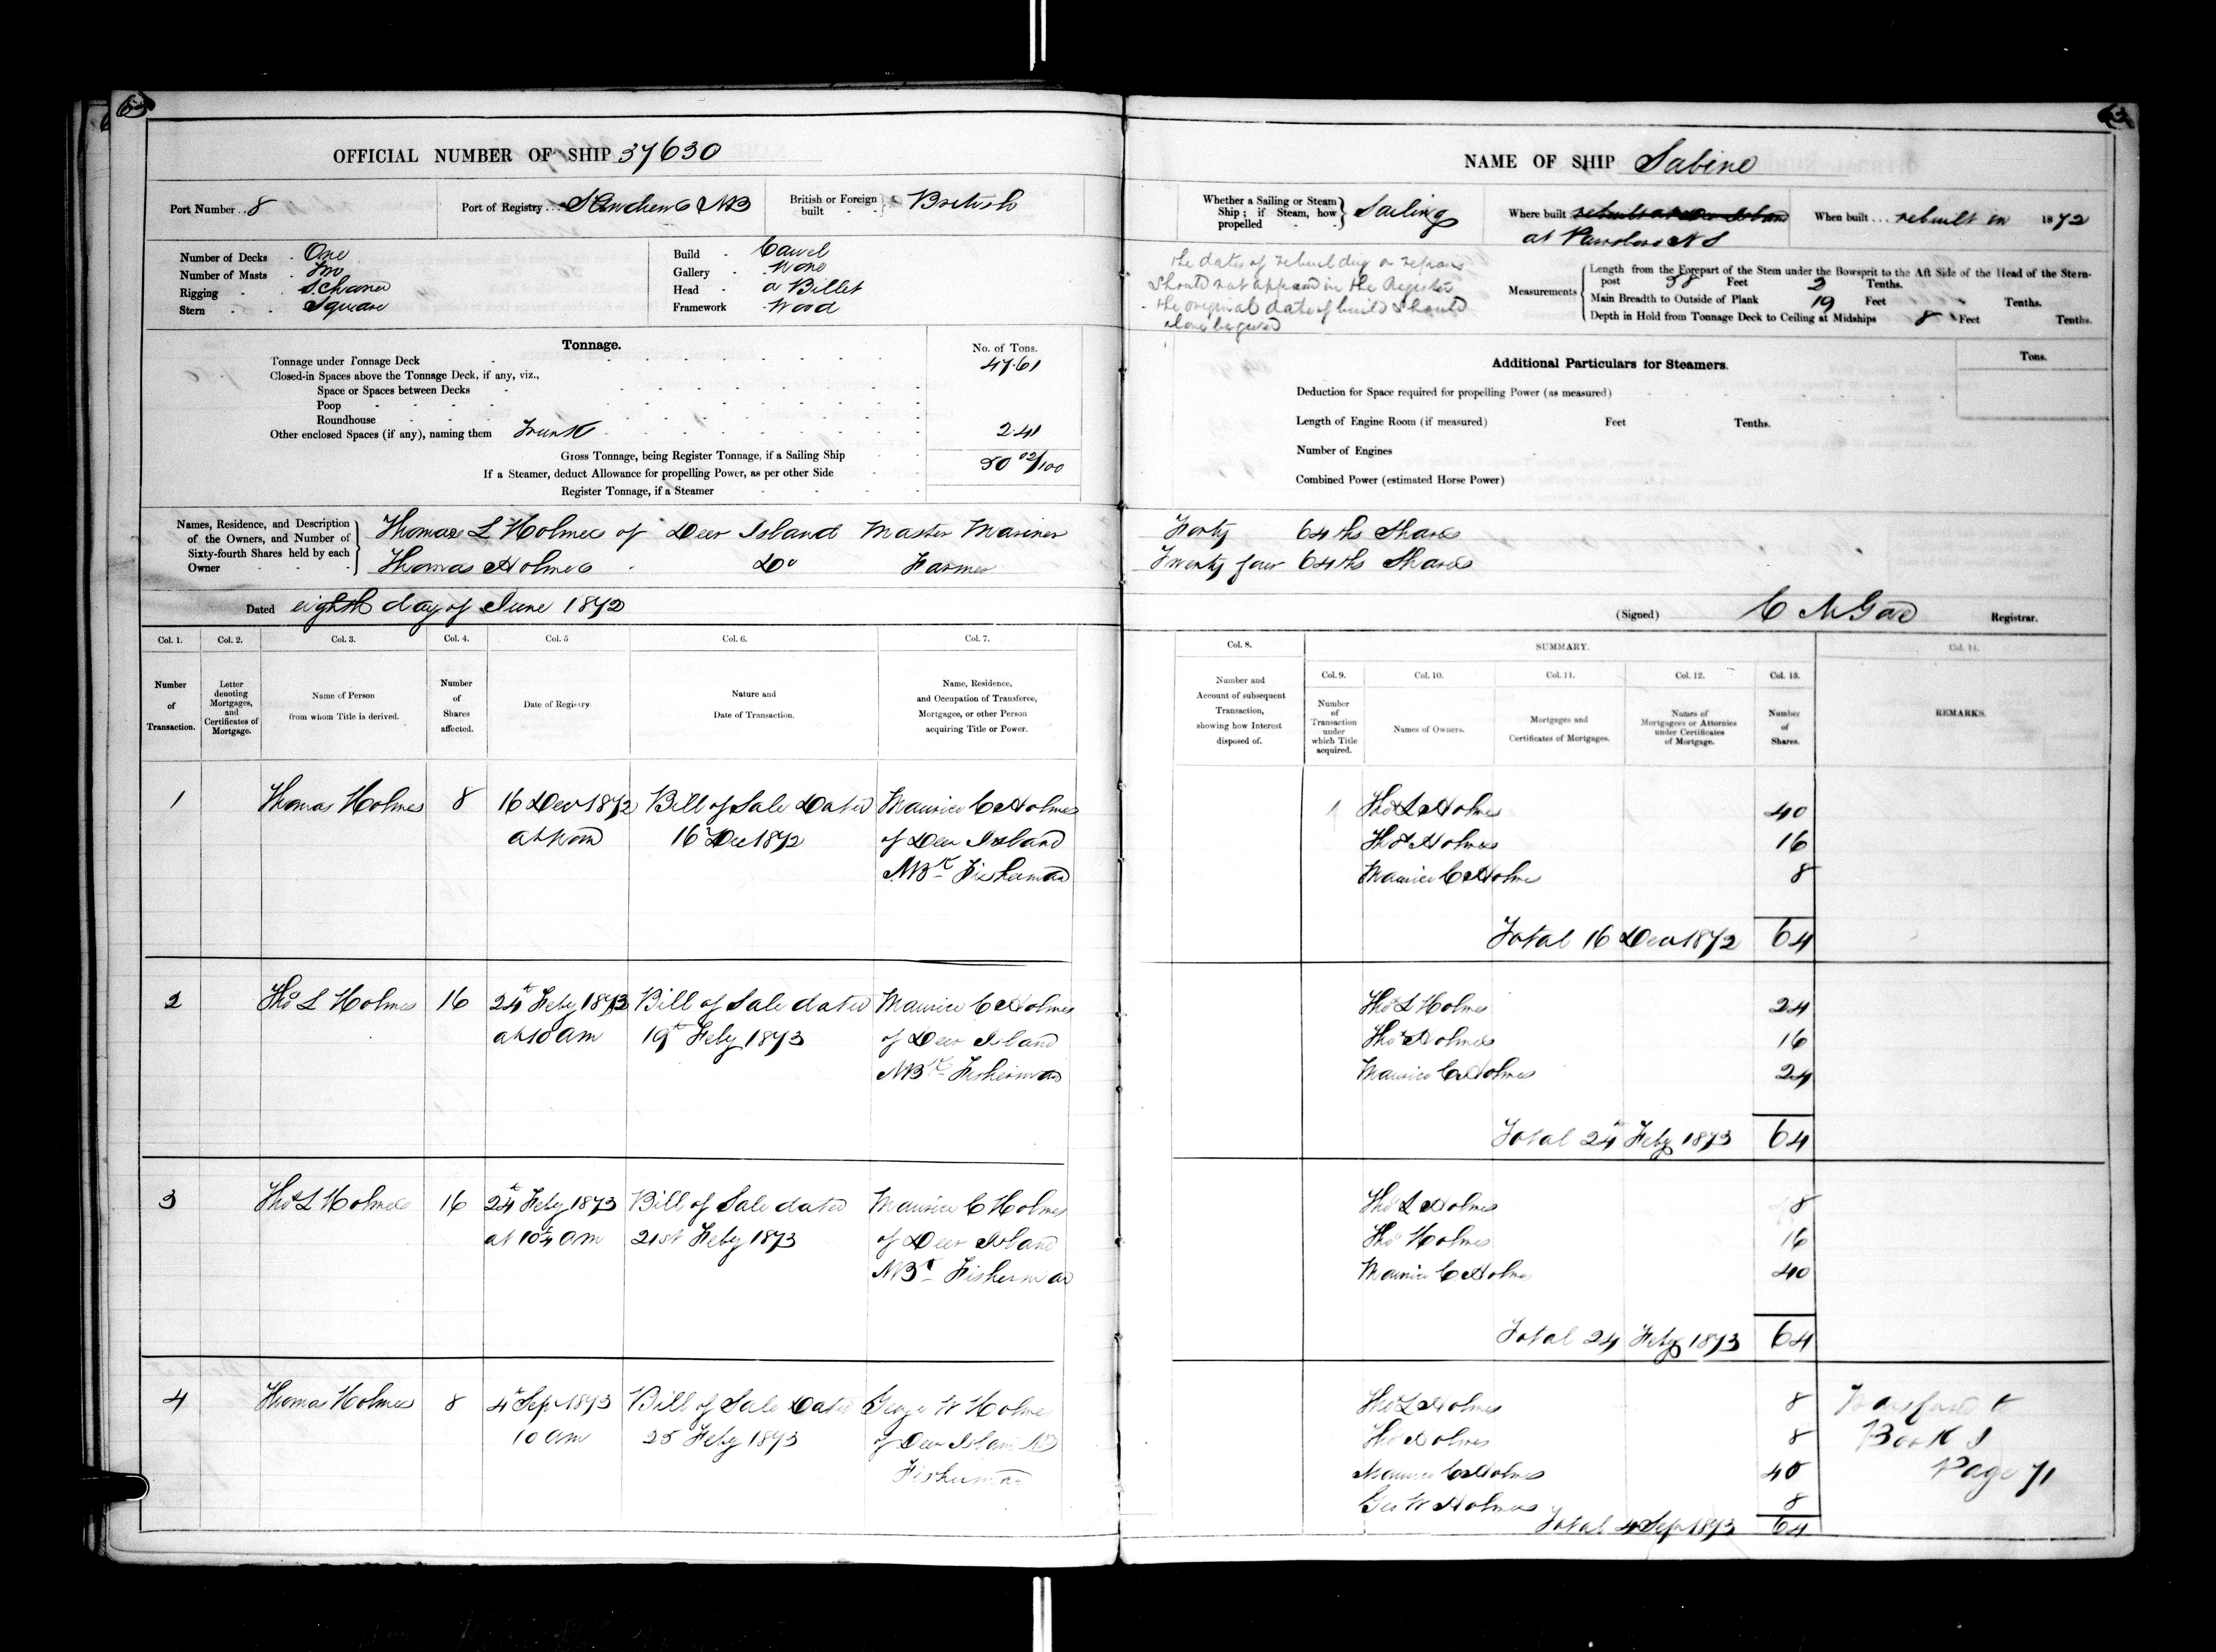 63
63
OFFICIAL NUMBER OF SHIP 37630
Port Number .. 8
Port of Registry ... St Andrews NB
British or Foreign built - - British
Number of Decks - One
Number of Masts - Two
Rigging - Schooner
Stern - - Square
Build - Carvel
Gallery - None
Head - a Billet
Framework - Wood
Tonnage.
No. of Tons.
Tonnage under Tonnage Deck 47.61
Closed-in Spaces above the Tonnage Deck, if any, viz.,
Space or Spaces between Decks
Poop
Roundhouse
Other enclosed Spaces (if any), naming them Trunk 2.41
Gross Tonnage, being Register Tonnage, if a Sailing Ship 50 02/100
If a Steamer, deduct Allowance for propelling Power, as per other Side
Register Tonnage, if a Steamer
Names, Residence, and Description of the Owners, and Number of Sixty-fourth Shares held by each Owner
Thomas L Holmes of Deer Island Master Mariner
Thomas Holmes Do Farmer
Dated eighth day of June 1872
Col. 1. Col. 2. Col. 3. Col. 4. Col. 5 Col. 6. Col. 7.
Number of Transaction.
Letter denoting Mortgages, and Certificates of Mortgage.
Name of Person from whom Title is derived.
Number of Shares affected.
Date of Registry.
Nature and Date of Transaction.
Name, Residence, and Occupation of Transferee, Mortgagee, or other Person acquiring Title or Power.
1 Thomas Holmes 8 16 Dec 1872 Bill of Sale Dated Maurice C Holmes
at noon 16 Dec 1872 of Deer Island
NBk Fisherman
2 Thos L Holmes 16 24th Feby 1873 Bill of Sale dated Maurice C Holmes
at 10 am 19th Feby 1873 of Deer Island
NBk Fisherman
3 Thos L Holmes 16 24th Feby 1873 Bill of Sale dated Maurice C Holmes
at 10¼ am 21st Feby 1873 of Deer Island
NBk Fisherman
4 Thomas Holmes 8 4th Sep 1873 Bill of Sale Dated George W Holmes
10 am 25 Feby 1873 of Deer Island NB
Fisherman
NAME OF SHIP Sabine
Whether a Sailing or Steam Ship; if Steam, how propelled - - Sailing
Where built rebuilt at Deer Island
at Parrsboro N S
When built ... rebuilt in 1872
the dates of rebuilding or repairs
should not appear in the Register
the original date of build should
alone be given
Measurements
Length from the Forepart of the Stem under the Bowsprit to the Aft Side of the Head of the Stern-
post 58 Feet 3 Tenths.
Main Breadth to Outside of Plank 19 Feet Tenths.
Depth in Hold from Tonnage Deck to Ceiling at Midships 8 Feet Tenths.
Additional Particulars for Steamers.
Tons.
Deduction for Space required for propelling Power (as measured)
Length of Engine Room (if measured) Feet Tenths.
Number of Engines
Combined Power (estimated Horse Power)
Forty 64ths Shares
Twenty four 64ths Shares
(Signed) C M Gove Registrar.
Col. 8. SUMMARY. Col. 14.
Col. 9. Col. 10. Col. 11. Col. 12. Col. 13.
Number and Account of subsequent Transaction, showing how Interest disposed of.
Number of Transaction under which Title acquired.
Names of Owners.
Mortgages and Certificates of Mortgages.
Names of Mortgagees or Attornies under Certificates of Mortgage.
Number of Shares.
REMARKS.
1 Thos L Holmes 40
Thos Holmes 16
Maurice C Holmes 8
Total 16 Dec 1872 64
Thos L Holmes 24
Thos Holmes 16
Maurice C Holmes 24
Total 24th Feby 1873 64
Thos L Holmes 8
Thos Holmes 16
Maurice C Holmes 40
Total 24 Feby 1873 64
Thos L Holmes 8
Thos Holmes 8
Maurice C Holmes 40
Geo W Holmes 8
Total 4 Sep 1873 64
Transfered to
Book I
Page 71